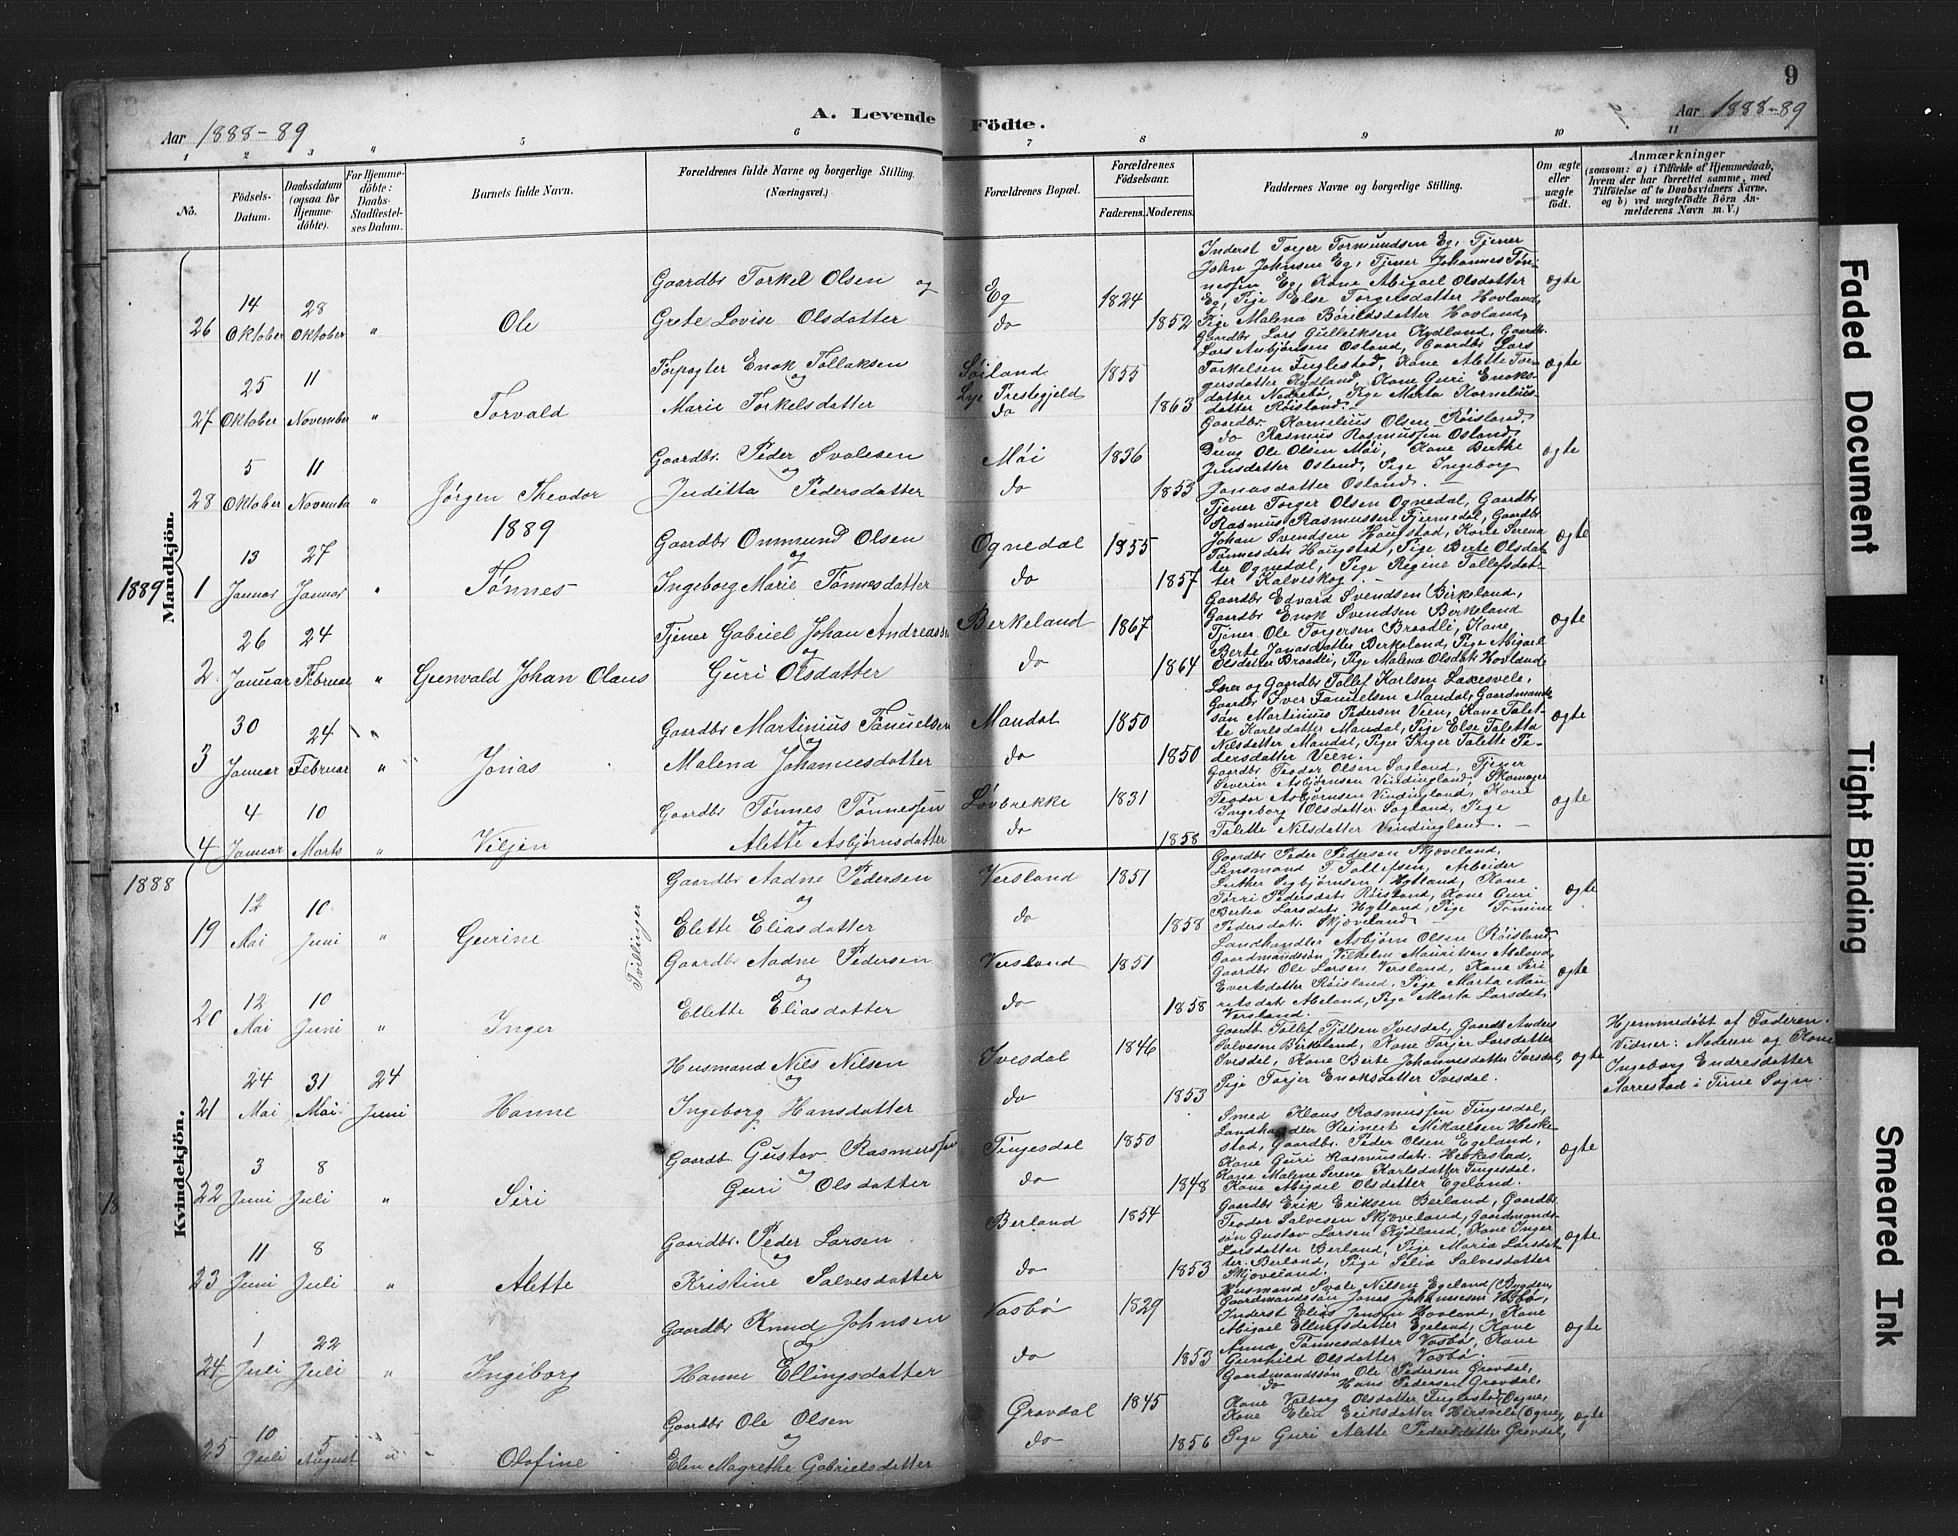 9
A. Levende Födte.
Aar 1888-89
Aar 1888-89
1 2 3 " 5 6 7 8 9 10 11
No.
Födsels-Datum.
Daabsdatum (ogsaa for Hjemmedöbte).
For Hjemmedöbte: Daabs-Stadfæstelses Datum.
Barnets fulde Navn.
Forældrenes fulde Navne og borgerlige Stilling. (Næringsvei.)
Forældrenes Bopæl.
Forældrenes Födselsaar.
Faderens. Moderens.
Faddernes Navne og borgerlige Stilling.
Om ægte eller uægte födt.
Anmærkninger
(saasom: a) i Tilfælde af Hjemmedaab,
hvem der har forrettet samme, med
Tilföielse af to Daabsvidners Navne,
og b) ved uægtefödte Börn An-
melderens Navn m. V.)
Mandkjön.
26 14 Oktober 28 Oktober " Ole
Gaardbr Torkel Olsen og
Grete Lovise Olsdatter
Eg 1824
do 1852
Inderst Torger Tormundsen Eg, Tjener
John Johnsen Eg, Tjener Johannes Tön-
nessen Eg, Kone Abigael Olsdatter
Eg, Pige Else Torgersdatter Hovland,
Pige Malena Börildsdatter Hovland,
ægte
27 25 Oktober 11 November " Torvald
Forpagter Enok Tollaksen
og
Marie Torkelsdatter
Söiland
Lye Prestegjeld 1855
do 1863
Gaardbr Lars Gulleiksen Kydland, Gaardb.
Lars Asbjørnsen Osland, Gaardbr Lars
Torkelsen Fuglestad, Kone Alette Tor-
gersdatter Kydland, Kone Guri Enoks-
datter Nodrebø, Pige Marta Kornelius-
datter Röisland.
ægte
28 5 Oktober 11 November " Jørgen Theodor
Gaardbr. Peder Svalesen
og
Juditta Pedersdatter
Möi 1836
do 1853
Gaardbr. Kornelius Olsen Röisland,
do Rasmus Rasmussen Osland,
Dreng Ole Olsen Möi, Kone Berthe
Jensdatter Osland, Pige Ingeborg
Jonasdatter Osland. —
ægte
1889
1889 1 13 Januar 27 Januar " Tønnes
Gaardbr Ommund Olsen
og
Ingeborg Marie Tønnesdatter
Ognedal 1855
do 1857
Tjener Torger Olsen Ognedal, Gaardbr
Rasmus Rasmussen Fjermedal, Gaardbr
Johan Svendsen Haugstad, Kone Serena
Tønnesdatr Haugstad, Pige Berte Olsdat-
ter Ognedal, Pige Regine Tollefsdat-
ter Kalveskog. —
ægte
2 26 Januar 24 Februar " Gunvald Johan Olaus
Tjener Gabriel Johan Andreassn
og
Guri Olsdatter
Berkeland 1867
do 1864
Gaardbr Edvard Svendsen Birkeland,
Gaardbr Enok Svendsen Berkeland
Tjener Ole Torgersen Braadli, Kone
Berte Jonasdatter Berkeland, Pige Abigael
Olsdatter Braadli, Pige Malena Olsdatr Hovland,
ægte
3 30 Januar 24 Februar " Jonas
Gaardbr Martinius Tønnelsen
og
Malena Johannesdatter
Mandal 1850
do 1850
Lærer og Gaardbr Tollef Karlsen Lakesvele,
Gaardbr Iver Tanuelsen Mandal, Gaardmands-
søn Martinius Pedersen Veen, Kone Talet-
te Karlsdatter Mandal, Pige Else Taletta
Nilsdatter Mandal, Pige Inger Talette Pe-
dersdatter Veen.
ægte
4 4 Januar 10 Marts " Viljen
Gaardbr Tønnes Tønnessen
og
Alette Asbjørnsdatter
Løvbrekke 1831
do 1858
Gaardbr Teodor Olsen Sagland, Tjener
Severin Asbjørnsen Vindingland, Skomager
Teodor Asbjørnsen Vindingland, Kone
Ingeborg Olsdatter Sagland, Pige
Talette Nilsdatter Vindingland. —
ægte
1888
Kvindekjön.
Tvillinger
19 12 Mai 10 Juni " Gurine
Gaardbr Aadne Pedersen
og
Elette Eliasdatter
Versland 1851
do 1858
Gaardbr Peder Pedersen Skjæveland,
Lensmand T. Tollefsen, Arbeider
Luther Sigbjørnsen Hytland, Kone
Torri Pedersdatr Röisland, Kone Guri
Bertea Larsdatr Hytland, Pige Tomine
Pedersdatr Skjæveland.
ægte
20 12 Mai 10 Juni " Inger
Gaardbr Aadne Pedersen
og
Ellette Eliasdatter
Versland 1851
do 1858
Landhandler Asbjørn Olsen Röisland,
Gaardmandssøn Vilhelm Mauritsen Aaland,
Gaardbr Ole Larsen Versland, Kone Siri
Evertsdatter Röisland, Pige Marta Mau-
ritsdatr Aaland, Pige Marta Larsdatr
Versland.
ægte
21 24 Mai 31 Mai 24 Juni Hanne
Husmand Nils Nilsen
og
Ingeborg Hansdatter
Ivesdal 1846
do 1853
Gaardb. Tollef Ivesdal, Gaardb Anders
Salvesen Birkeland, Kone Torjer Larsdatter
Ivesdal, Kone Berte Johannesdatter Ivesdal,
Pige Torjer Enoksdatter Ivesdal.
ægte
Hjemmedøbt af Faderen.
Vidner: Moderen og Kone
Ingeborg Endresdatter
Aarrestad i Time Sogn.
22 3 Juni 8 Juli " Siri
Gaardb. Gustav Rasmussen
og
Guri Olsdatter
Tingesdal 1850
do 1848
Smed Klaus Rasmussen Tingesdal,
Landhandler Reinert Mikaelsen Heske-
stad, Gaardbr. Peder Olsen Egeland,
Kone Guri Rasmusdatr. Heskestad,
Kone Malene Serene Karlsdatter Tingesdal,
Kone Abigael Olsdatter Egeland.
ægte
23 11 Juni 8 Juli " Alette
Gaardbr. Peder Larsen
og
Kristine Salvesdatter
Berland 1854
do 1853
Gaardbr Erik Eriksen Berland, Gaardbr
Teodor Salvesen Skjæveland, Gaardmands-
søn Gustav Larsen Kydland, Kone Inger
Larsdatter Berland, Pige Maria Larsdat-
ter Berland, Pige Selia Salvesdatter
Skjæveland.
ægte
24 1 Juli 22 Juli " Ingeborg
Gaardbr Knud Johnsen
og
Hanne Ellingsdatter
Vasbø 1829
do 1853
Husmand Svale Nilsen Egeland (Bygden,
Gaardmandssøn Jonas Johannesen Vasbø,
Inderst Elias Jensen Hovland, Kone
Abigael Ellingsdatter Egeland, Kone
Anna Tønnesdatter Vasbø, Kone
Gunhild Olsdatter Vasbø. —
ægte
25 10 Juli 5 August " Olofine
Gaardbr Ole Olsen
og
Elen Magrethe Gabrielsdatter
Gravdal 1845
do 1856
Gaardmandssön Ole Pedersen Gravdal,
do Hans Pedersen Gravdal,
Kone Valborg Olsdatter Fuglestad (Ogne,
Kone Elen Eriksdatter Hersvele (Ogne,
Pige Guri Alette Pedersdatter Gravdal,
ægte
Faded Document
Tight Binding
Smeared Ink